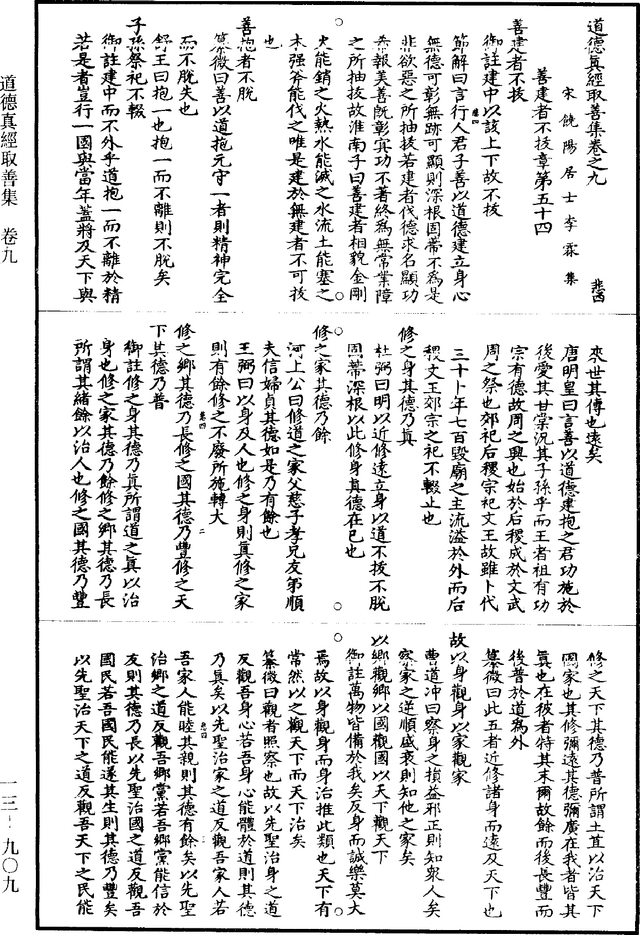 道德真經取善集卷之九
宋饒陽居士李霖集
善建者不拔章第五十四
善建者不拔
御註建中以該上下故不拔
節解曰言行人君子善以道德建立身心
無德可彰無跡可顯則深根固蒂不為是
非欲惡之所抽拔若建者代德求名顯功
希報美善旣彰實功不著終為無常業障
之所抽拔故淮南子曰善建者相貌金剛
火能銷之火熱水能滅之水流土能塞之
木强斧能伐之唯是建於無建者不可拔
也
善抱者不脫
纂微曰善以道抱元守一者則精神完全
而不脫失也
舒王曰抱一也抱一而不離則不脫矣
子孫祭祀不輟
御註建中而不外乎道抱一而不離於精
若是者豈行一國與當年蓋將及天下與
來世其傳也遠矣
唐明皇曰言善以道德建抱之君功施於
後愛其甘棠況其子孫乎而王者祖有功
宗有德故周之興也始於后稷成於文武
周之祭也郊祀后稷宗祀文王故雖卜代
三十卜年七百毀廟之主流溢於外而后
稷文王郊宗之祀不輟止也
修之身其德乃眞
杜弼曰明以近修遠立身以道不拔不脫
固蒂深根以此修身真德在已也
修之家其德乃餘
河上公曰修道之家父慈子孝兄友弟順
夫信婦貞其德如是乃有餘也
王弼曰以身及人也修之身則眞修之家
則有餘修之不廢所施轉大
修之鄉其德乃長修之國其德乃豐修之天
下其德乃普
御註修之身其德乃眞所謂道之眞以治
身也修之家其德乃餘修之鄉其德乃長
所謂其緒餘以治人也修之國其德乃豐
修之天下其德乃普所謂土苴以治天下
國家也其修彌遠其德彌廣在我者皆其
眞也在彼者特其末爾故餘而後長豐而
後普於道為外
纂微曰此五者近修諸身而遠及天下也
故以身觀身以家觀家
曹道冲曰察身之損益邪正則知衆人矣
察家之逆順盛衰則知他之家矣
以鄉觀鄉以國觀國以天下觀天下
御註萬物皆備於我矣反身而誠樂莫大
焉故以身觀身而身治推此類也天下有
常然以之觀天下而天下治矣
纂微曰觀者照察也故以先聖治身之道
反觀吾身心若吾身心能體於道則其德
乃真矣以先聖治家之道反觀吾家人若
吾家人能睦其親則其德有餘矣以先聖
治鄉之道反觀吾鄉黨若吾鄉黨能信於
友則其德乃長以先聖治國之道反觀吾
國民若吾國民能遂其生則其德乃豐矣
以先聖治天下之道反觀吾天下之民能
道德真經取善集　卷九
一三—九〇九